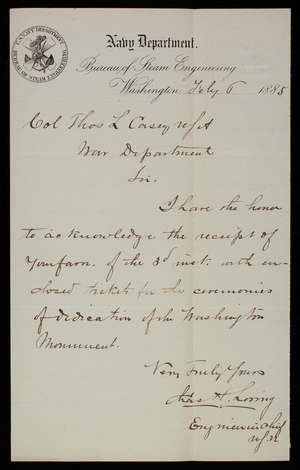 U.S. NAVY DEPARTMENT
BUREAU OF STEAM ENGINEERING
Navy Department.
Bureau of Steam Engineering
Washington Feby 6 1885
Col Thos L Casey USA
War Department
Sir.
I have the honor
to acknowledge the receipt of
Your favr. of the 3d inst. with en-
closed tickets for the ceremonies
of dedication of the Washington
Monument.
Very Truly Yours
Chas H. Loring
Engineer in Chief
U.S.N.